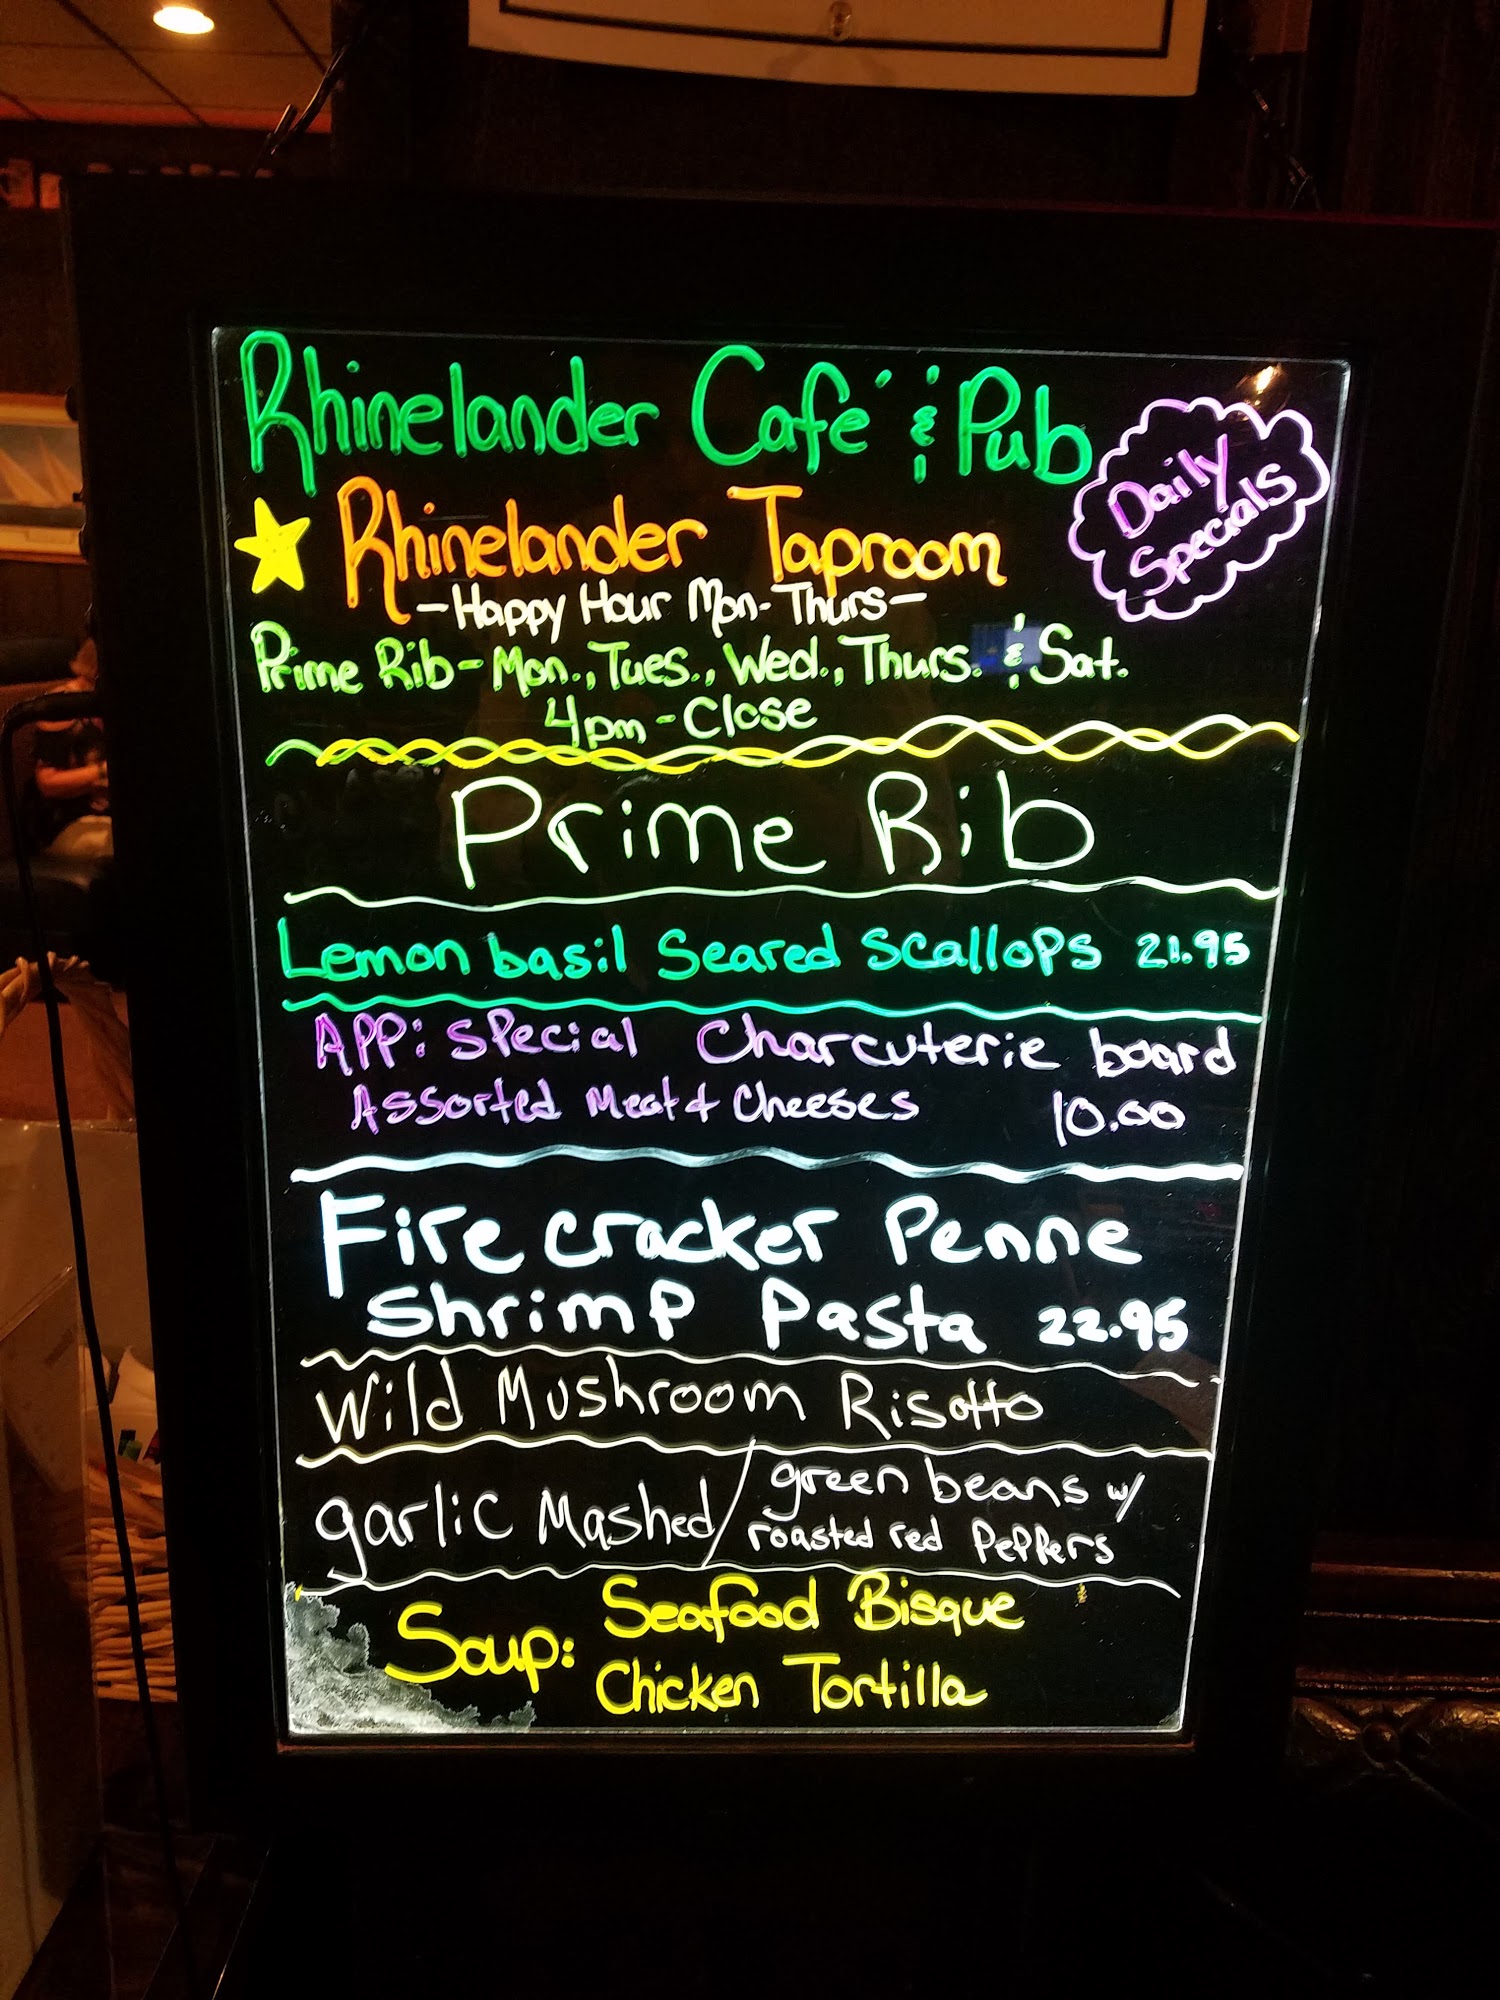 Rhinelander Café & Pub
Daily
Specials
Rhinelander Taproom
-Happy Hour Mon-Thurs-
Prime Rib-Mon., Tues., Wed., Thurs. & Sat.
4pm-Close
Prime Rib
Lemon basil Seared Scallops 21.95
APP: Special Charcuterie board
Assorted Meat & Cheeses 10.00
Fire cracker Penne
Shrimp Pasta 22.95
Wild Mushroom Risotto
garlic Mashed/green beans w/
roasted red Peppers
Soup: Seafood Bisque
Chicken Tortilla